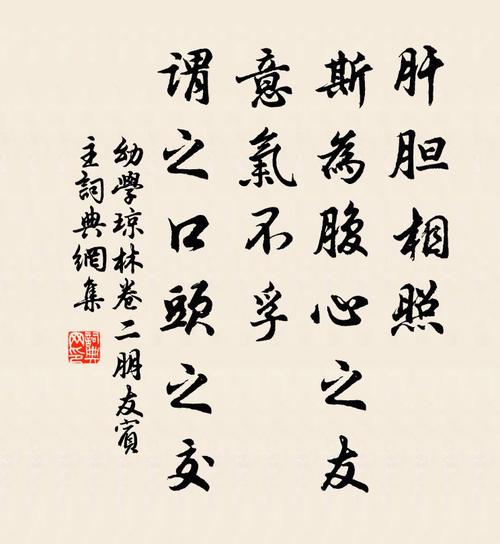 肝胆相照
斯為腹心之友
意氣不孚
謂之口頭之交
幼學琼林卷二朋友賓
主詞典網集